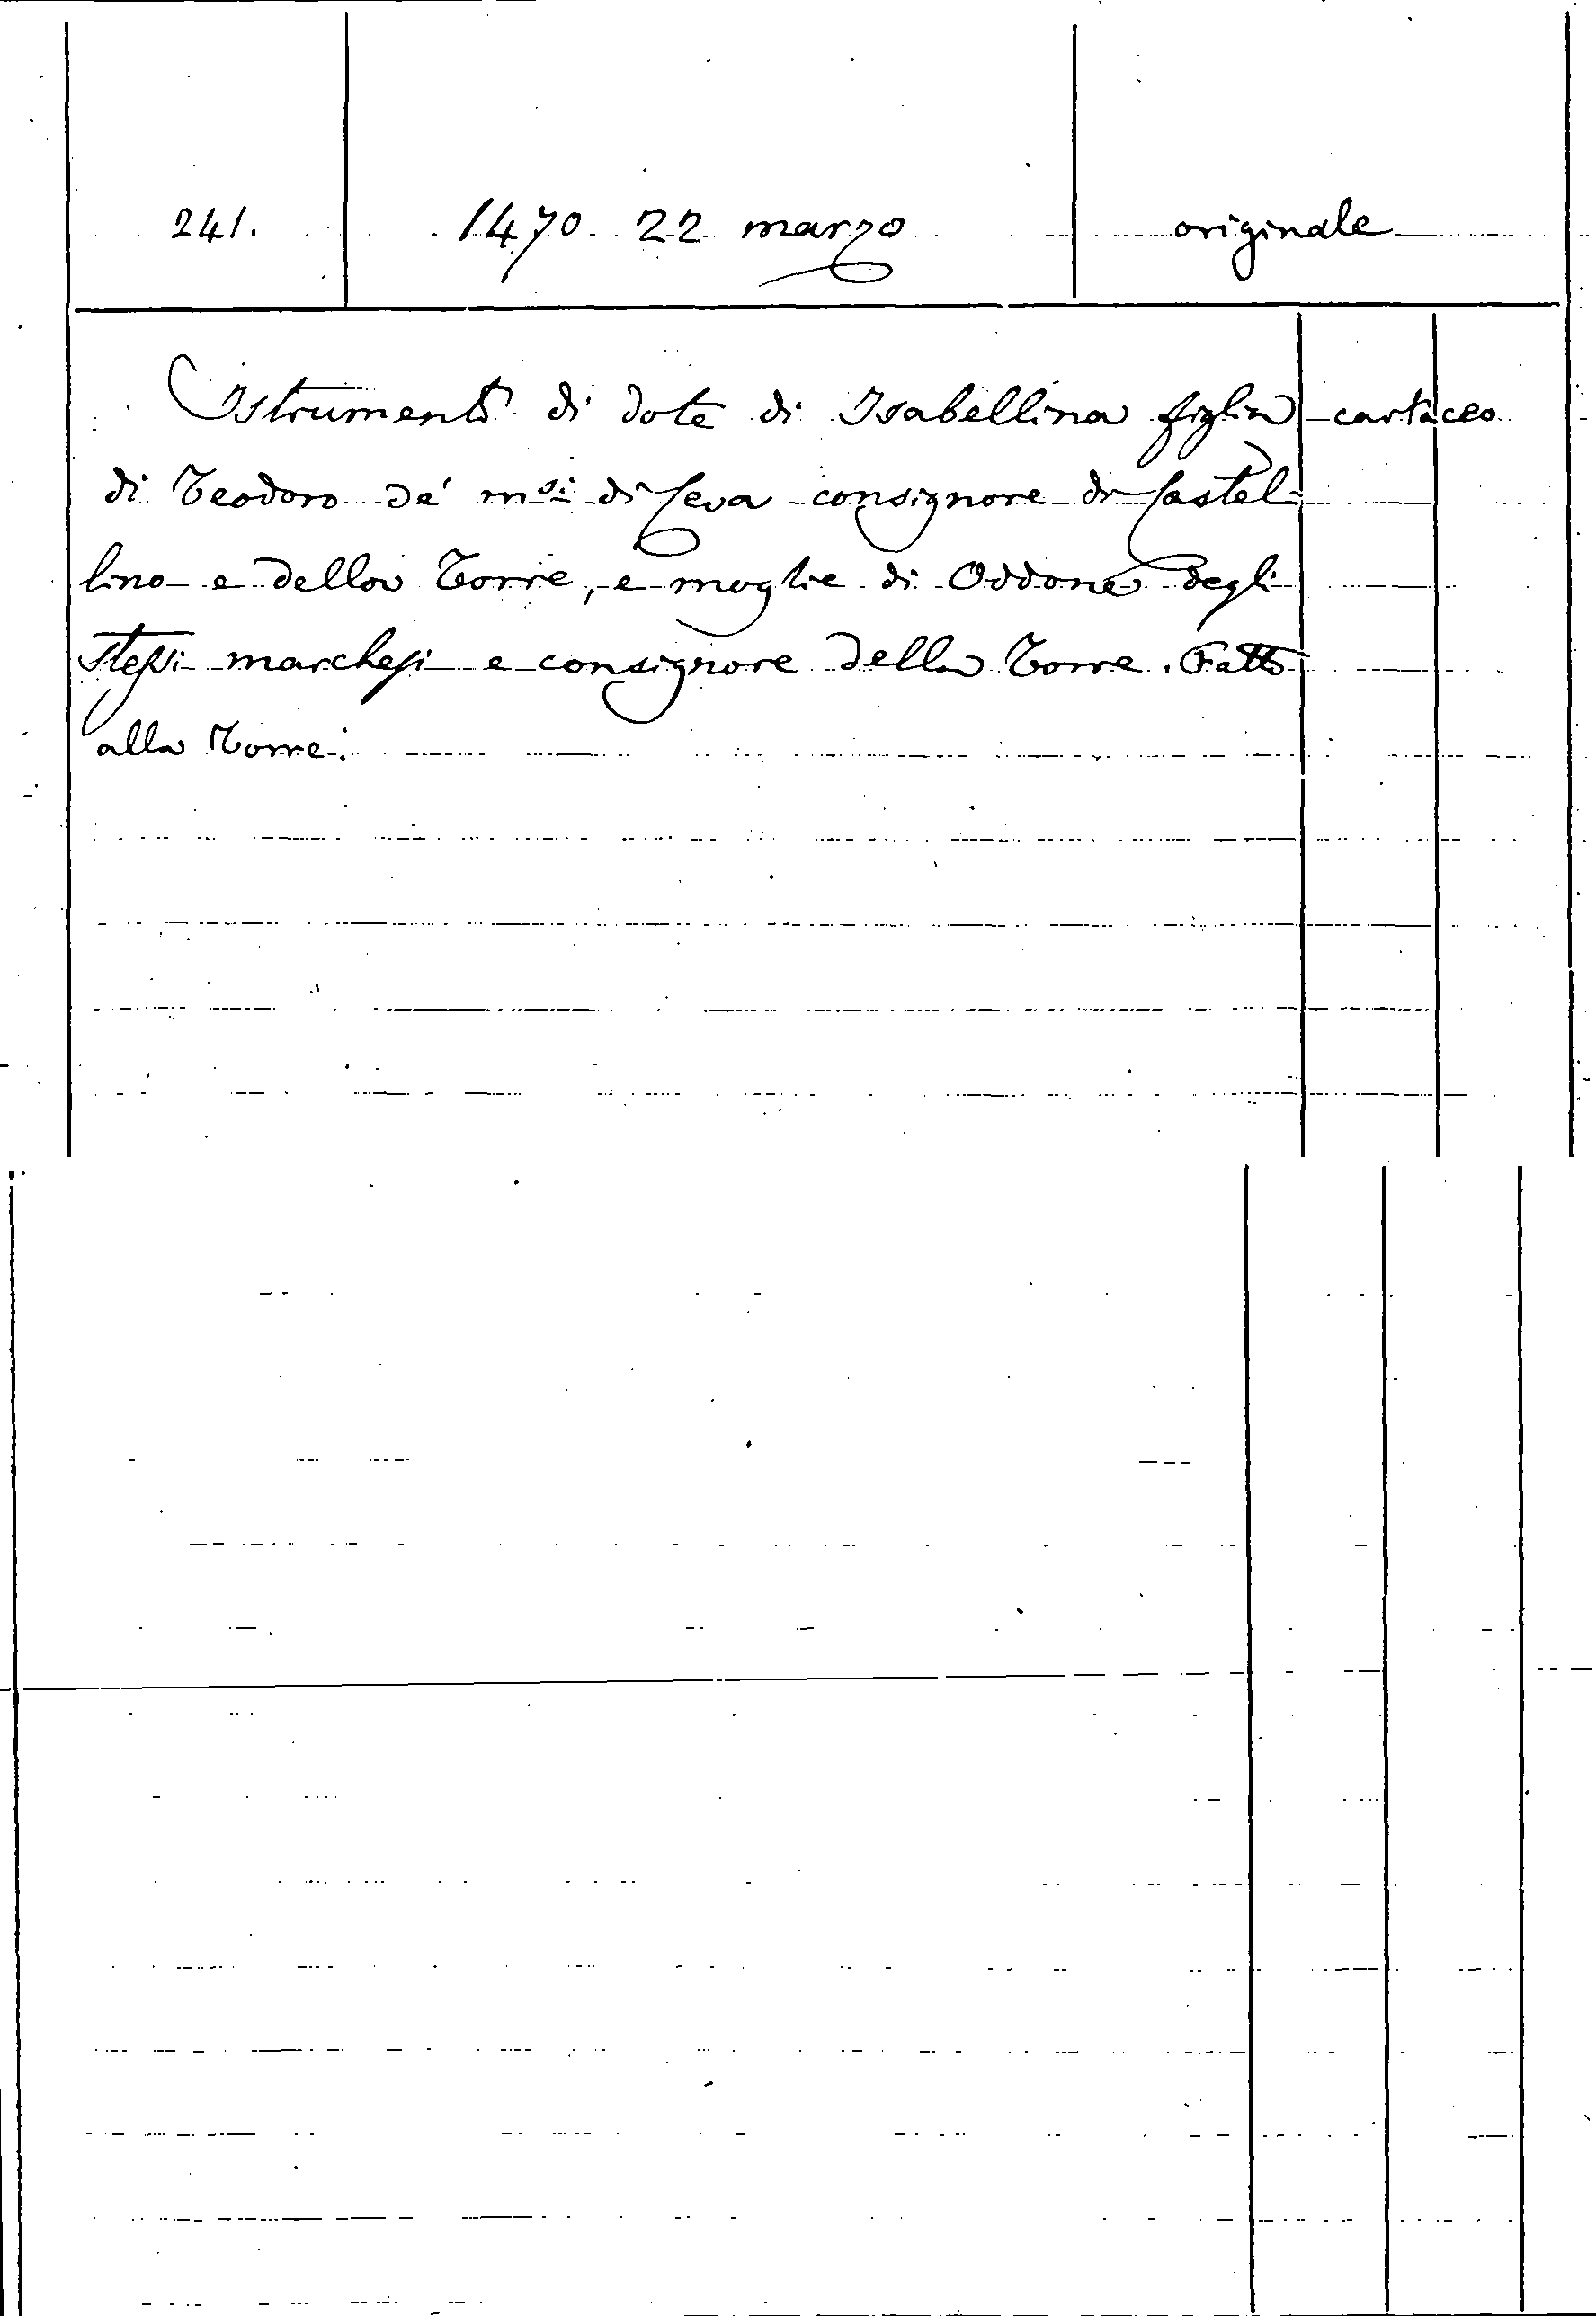 241. 1470 22 marzo originale
Istrumento di dote di Isabellina figlia cartaceo
di Teodoro de' msi di Ceva consignore di Castel=
lino e della Torre, e moglie di Oddone degli
stessi marchesi e consignore della Torre. Fatto
alla Torre.